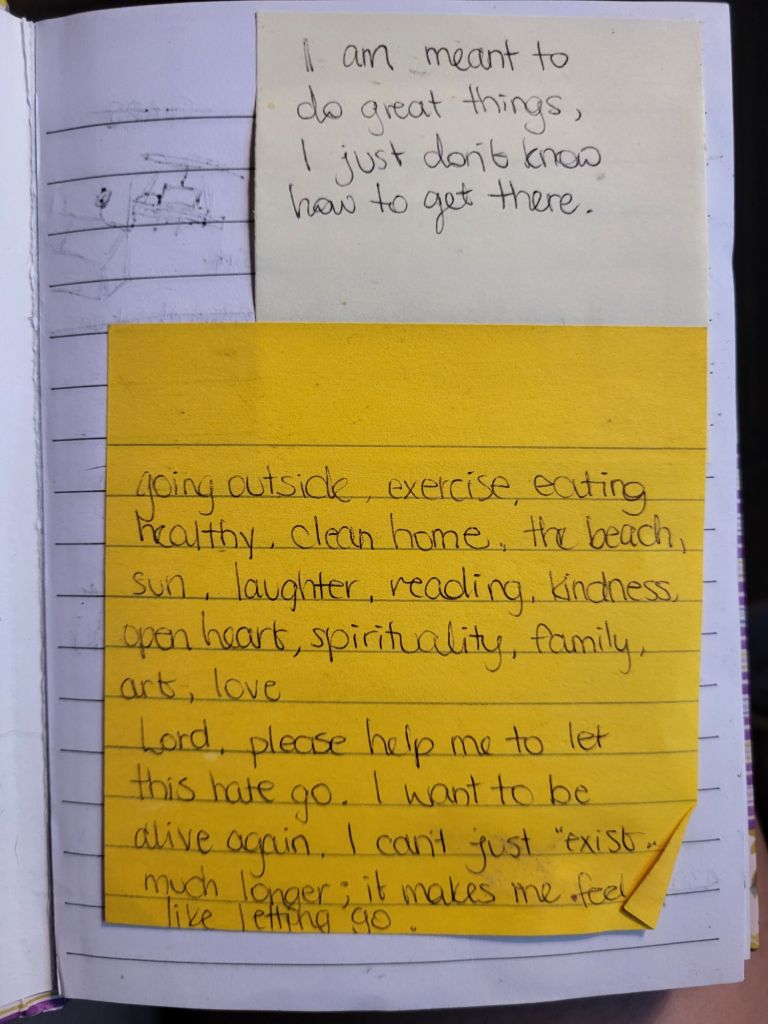 I am meant to
do great things,
I just don't know
how to get there.
going outside, exercise, eating
healthy, clean home, the beach,
sun, laughter, reading, kindness,
open heart, spirituality, family,
art, love
Lord, please help me to let
this hate go. I want to be
alive again. I can't just "exist"
much longer; it makes me feel
like letting go.